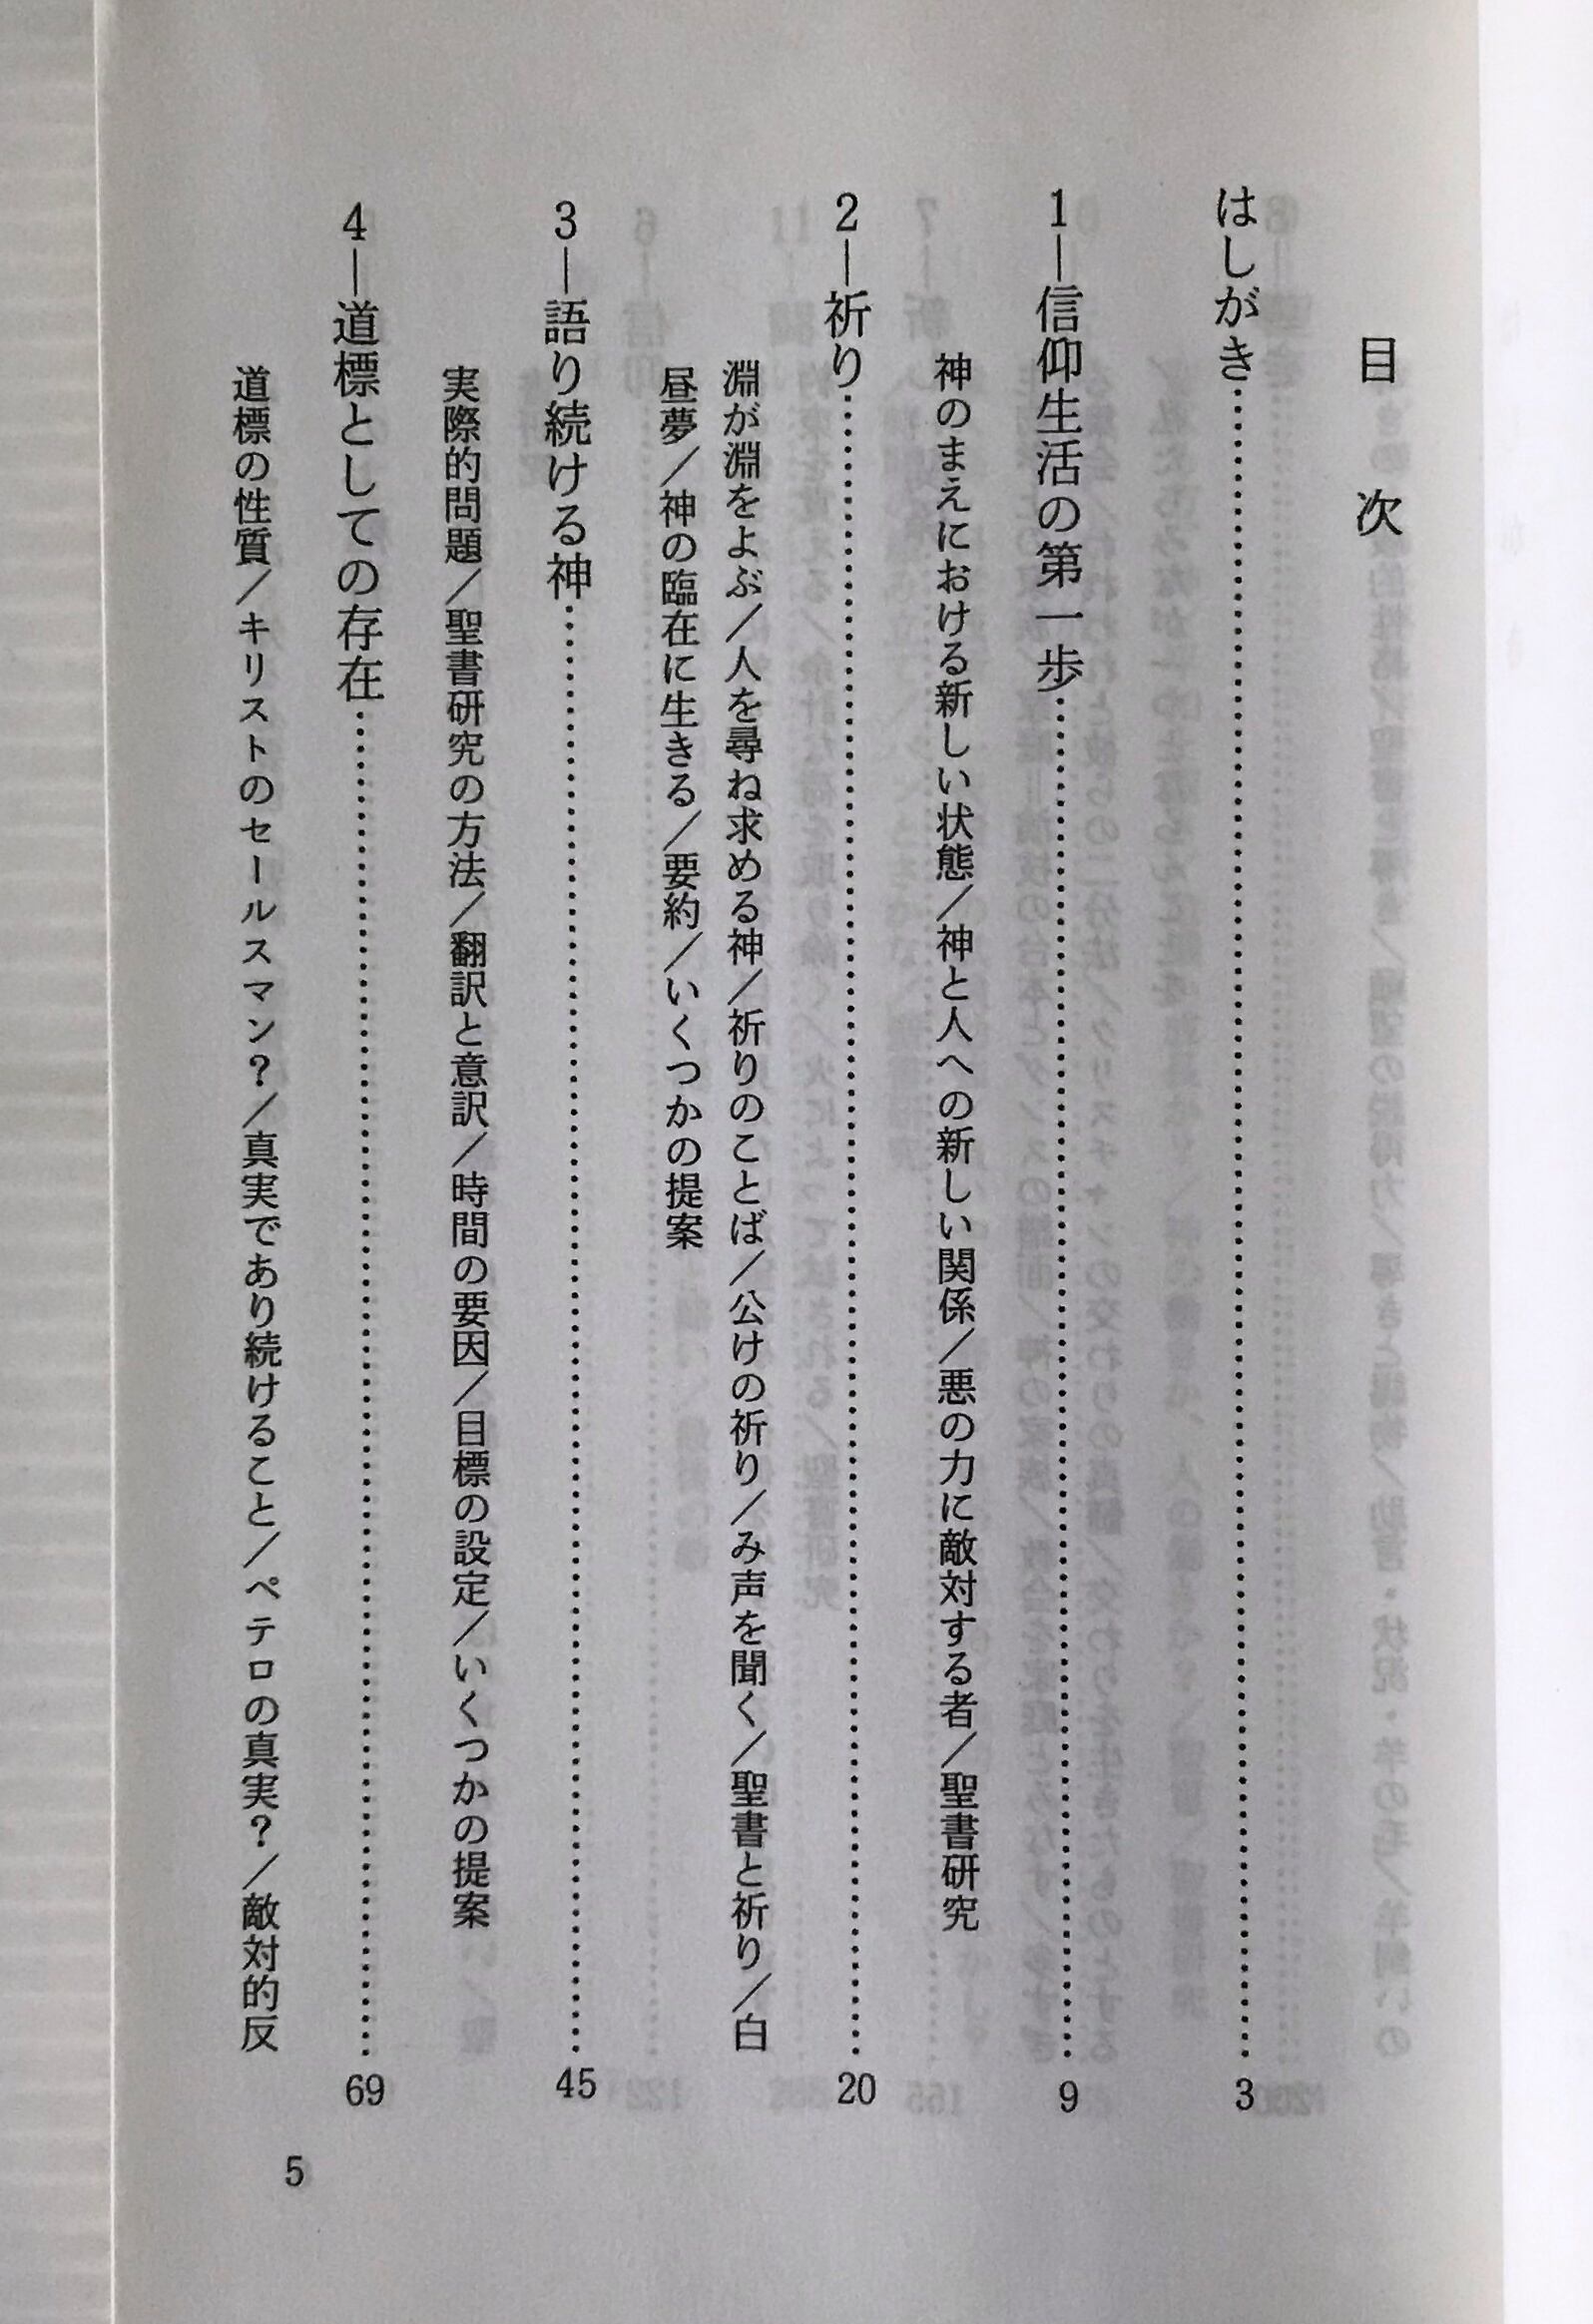 目次
はしがき……………3
1―信仰生活の第一歩……………9
神のまえにおける新しい状態／神と人への新しい関係／悪の力に敵対する者／聖書研究
2―祈り……………20
淵が淵をよぶ／人を尋ね求める神／祈りのことば／公けの祈り／み声を聞く／聖書と祈り／白
昼夢／神の臨在に生きる／要約／いくつかの提案
3―語り続ける神……………45
実際的問題／聖書研究の方法／翻訳と意訳／時間の要因／目標の設定／いくつかの提案
4―道標としての存在……………69
道標の性質／キリストのセールスマン？／真実であり続けること／ペテロの真実？／敵対的反
5